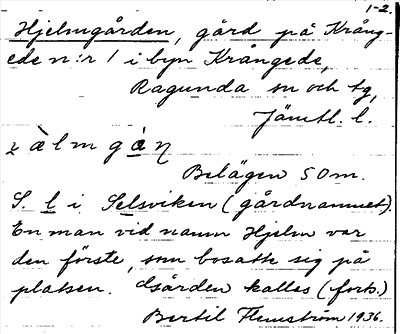 1-2.
Hjelmgården, gård på Krång-
ede n:r 1 i byn Krångede,
Ragunda sn och tg,
Jämtl. l.
Belägen 50 m.
S. l i Selsviken (gårdnamnet).
En man vid namn Hjelm var
den förste, som bosatte sig på
platsen. Gården kallas (forts.)
Bertil Flemström 1936.